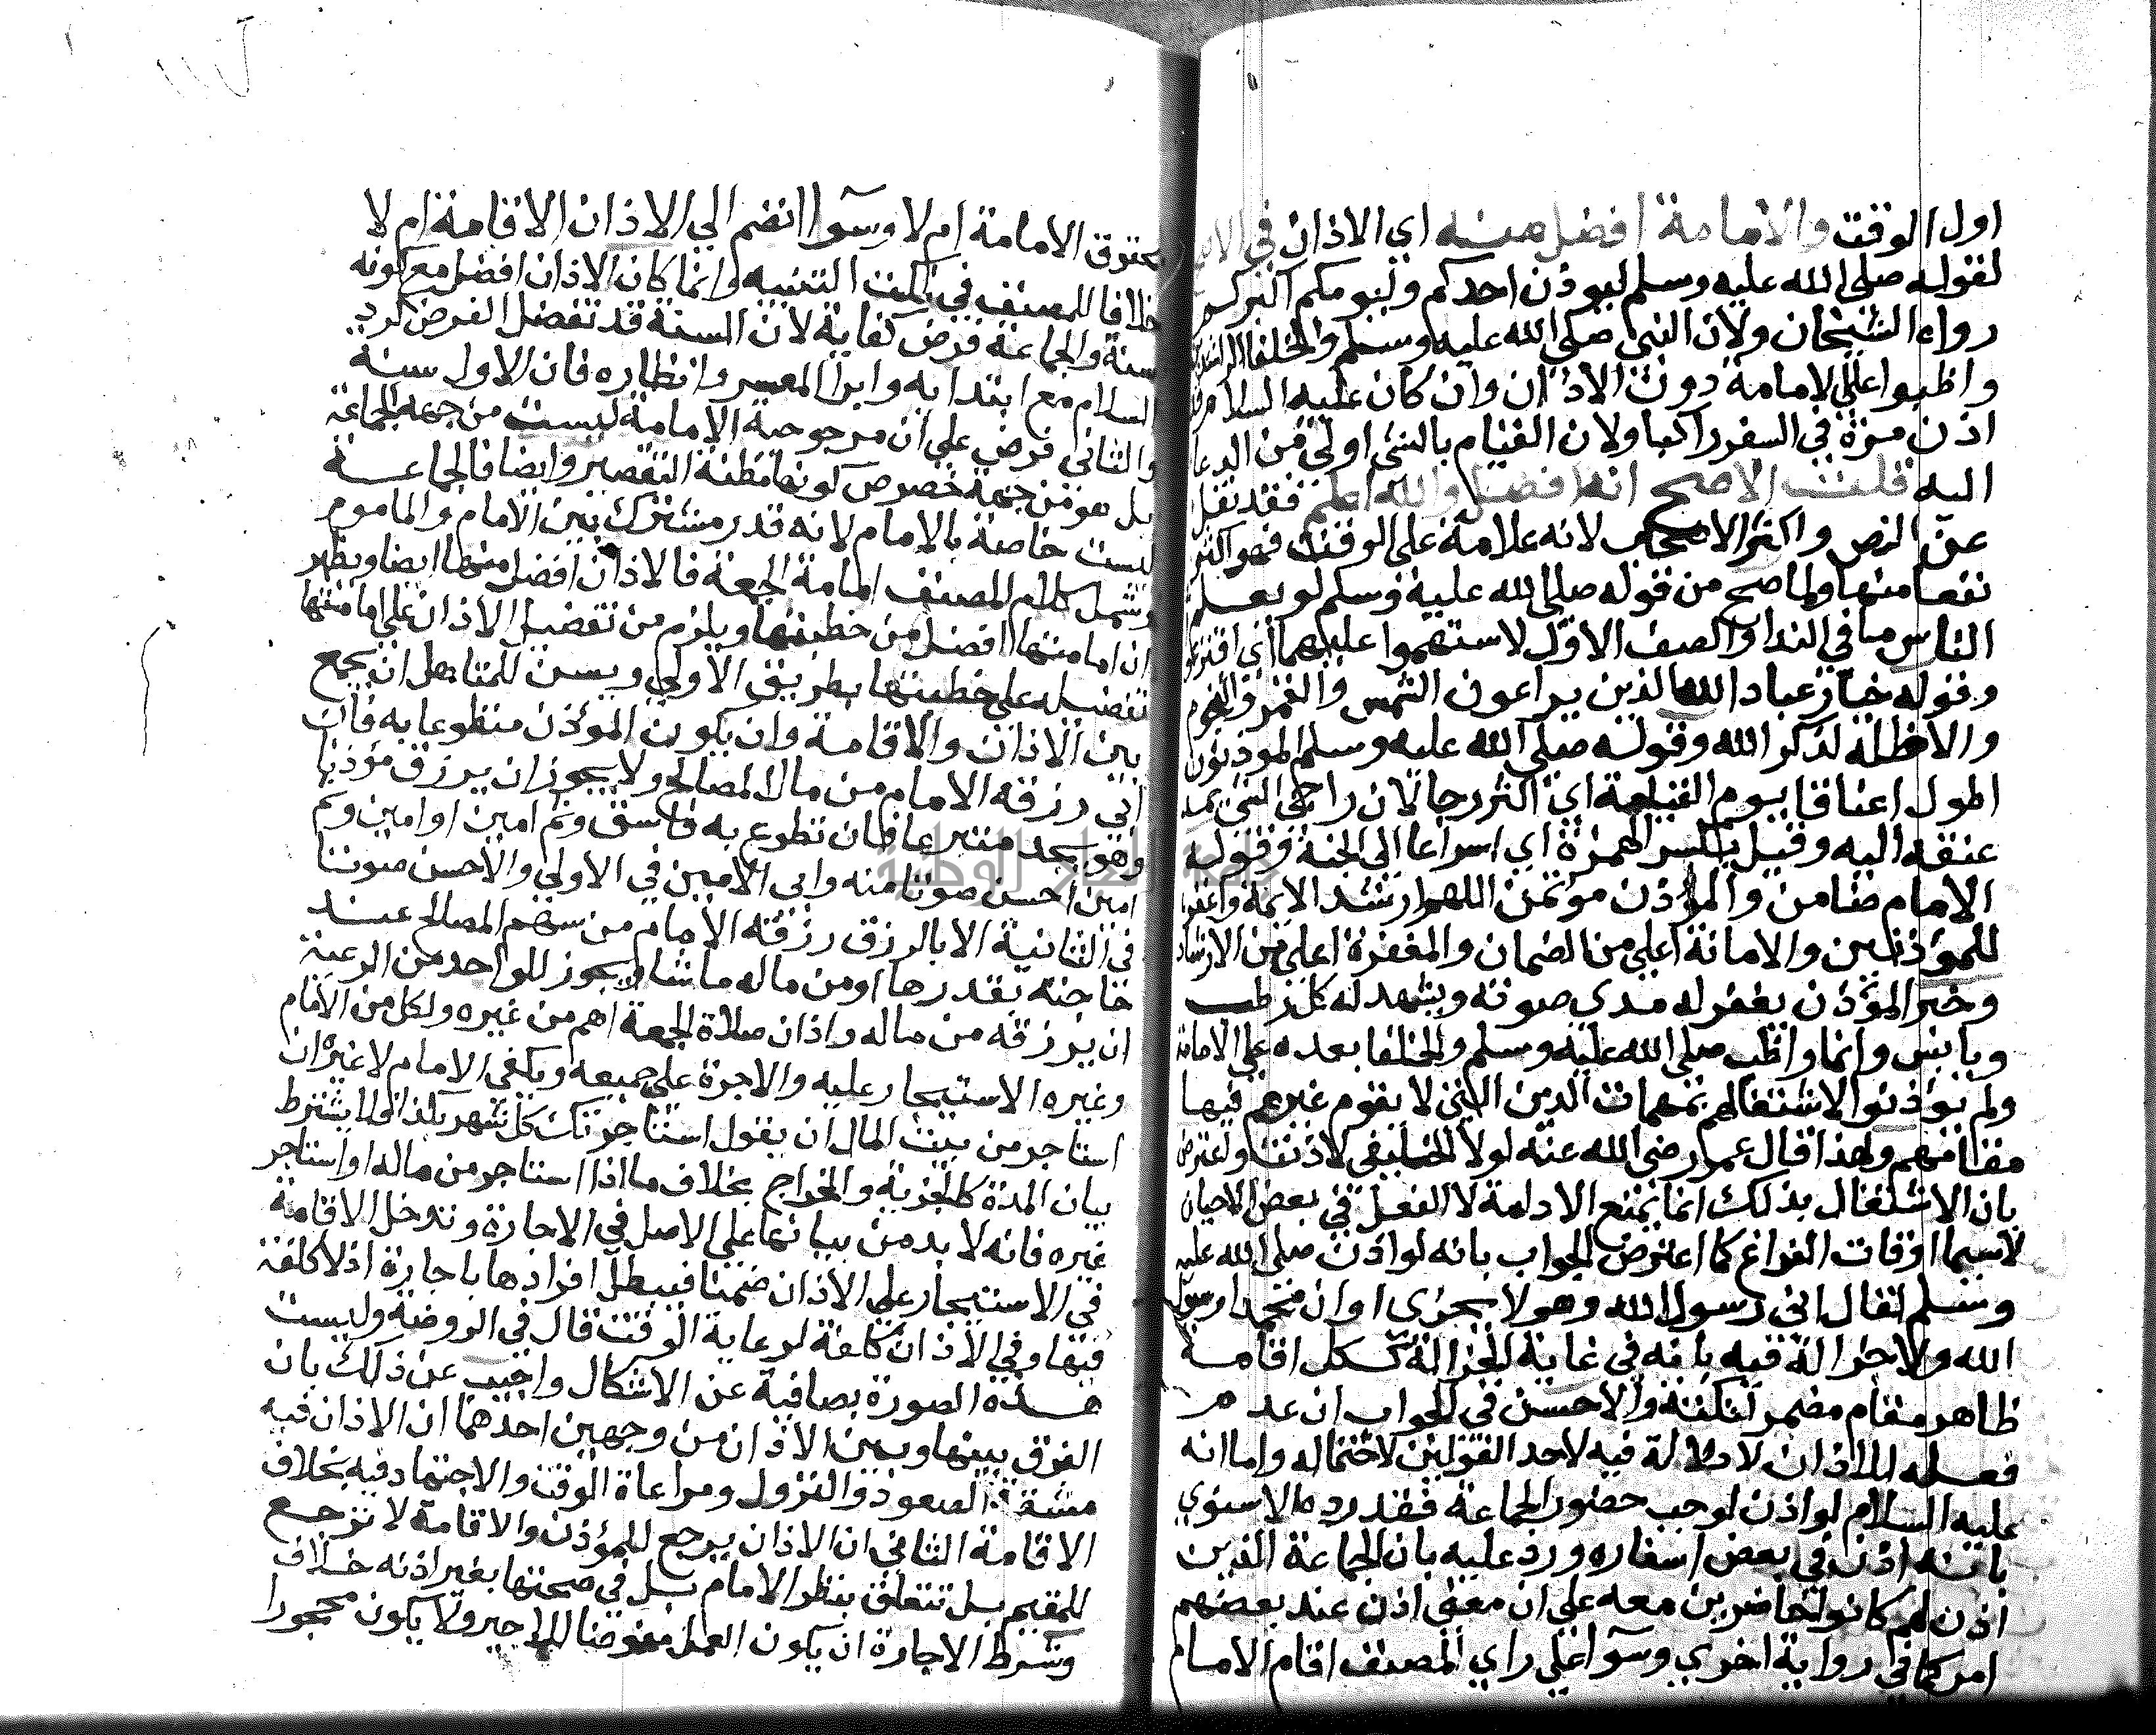 اول الوقت والامامة افضل منه اي الاذان في
لقوله صلى الله عليه وسلم ليوذن احدكم وليومكم اكبركم
رواه الشيخان ولان النبي صلى الله عليه وسلم والخلفا الراشدين
واظبوا على الامامة دون الاذان وان كان عليه السلام
اذن مرة في السفر راكبا ولان القيام بالشي اولى من الدعا
اليه قلت الاصح انه افضل والله اعلم فقد نقل
عن النص واكثر الاصحاب لانه علامة على الوقت فهو اكثر
نفعا منها ولما صح من قوله صلى الله عليه وسلم لو يعلم
الناس ما في الندا والصف الاول لاستهموا عليهما اي اقترعوا
وقوله خيار عباد الله الذين يراعون الشمس والقمر والنجوم
والاظلة لذكر الله وقوله صلى الله عليه وسلم الموذنون
اطول اعناقا يوم القيمة اي اكثر رجا لان راجي الشي يمد
عنقه اليه وقيل بكسر الهمزة اي اسراعا الى الجنة وقوله
الامام ضامن والمؤذن مؤتمن اللهم ارشد الائمة واغفر
للمؤذنين والامانة اعلى من الضمان والمغفرة اعلى من الارشاد
وخبر المؤذن يغفر له مدى صوته ويشهد له كل رطب
ويابس وانما واظب صلى الله عليه وسلم والخلفا بعده على الامامة
ولم يوذنوا لاشتغالهم بمهمات الدين التي لا يقوم غيرهم فيها
مقامهم ولهذا قال عمر رضي الله عنه لولا الخليفى لاذنت واعترض
بان الاشتغال بذلك انما يمنع الادامة لا الفعل في بعض الاحيان
لاسيما اوقات الفراغ كما اعترض الجواب بانه لو اذن صلى الله عليه
وسلم لقال اني رسول الله وهو لا يجزى او ان محمدا رسول
الله ولا جزالة فيه بانه في غاية الجزالة كـكل اقامة
ظاهر مقام مضمر لنكتة والاحسن في الجواب ان عدم
فعله للاذان لا دلالة فيه لاحد القولين لاحتماله واما انه
عليه السلام لو اذن لوجب حضور الجماعة فقد رده الاسنوي
بانه اذن في بعض اسفاره ورد عليه بان الجماعة الذين
اذن لهم كانوا حاضرين معه على ان معنى اذن عند بعضهم
امر كما في رواية اخرى وسوآ على راي المصنف اقام الامام
بحقوق الامامة ام لا وسوآ انضم الي الاذان الاقامة ام لا
خلافا للمصنف في نكت التنبيه وانما كان الاذان افضل مع كونه
سنة والجماعة فرض كفاية لان السنة قد تفضل الفرض كرد
السلام مع ابتدايه وابرا المعسر وانظاره فان الاول سنة
والثاني فرض على ان مرجوحية الامامة ليست من جهة الجماعة
بل هو من جهة خصوص كونها مظنة التقصير وايضا فالجماعة
ليست خاصة بالامام لانه قدر مشترك بين الامام والماموم
وشمل كلام المصنف امامة الجمعة فالاذان افضل منها ايضا ويظهر
ان امامتها افضل من خطبتها ويلزم من تفضيل الاذان على امامتها
تفضيله على خطبتها بطريق الاولي ويسن للمتاهل ان يجمع
بين الاذان والاقامة وان يكون المؤذن متطوعا به فان
ابي رزقه الامام من مال المصالح ولا يجوز ان يرزق مؤذنا
وهو يجد متبرعا فان تطوع به فاسق وثم امين او امين وثم
امين احسن صوتا منه وابى الامين في الاولي والاحسن صوتا
في الثانية الا بالرزق رزقه الامام من سهم المصالح عند
حاجته بقدرها او من ماله ما شا ويجوز للواحد من الرعية
ان يرزقه من ماله واذان صلاة الجمعة اهم من غيره ولكل من الامام
وغيره الاستيجار عليه والاجرة على جميعه ويكفي الامام لا غيره ان
استاجر من بيت المال ان يقول استاجرتك كل شهر بكذا فلا يشترط
بيان المدة كالجزية والخراج بخلاف ما اذا استاجر من ماله او استاجر
غيره فانه لا بد من بيانها على الاصل في الاجارة وتدخل الاقامة
في الاستيجار على الاذان ضمنا فيبطل افرادها باجارة اذ لا كلفة
فيها وفي الاذان كلفة لرعاية الوقت قال في الروضة وليست
هذه الصورة بصافية عن الاشكال واجيب عن ذلك بان
الفرق بينها وبين الاذان من وجهين احدهما ان الاذان فيه
مشقة الصعود والنزول ومراعاة الوقت والاجتهاد فيه بخلاف
الاقامة الثاني ان الاذان يرجع للمؤذن والاقامة لا ترجع
للمقيم بل تتعلق بنظر الامام بل في صحتها بغير اذنه خلاف
وشرط الاجارة ان يكون العمل مفوضا للاجير ولا يكون محجورا